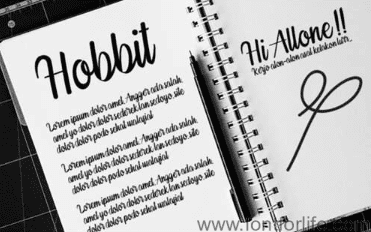 Hobbit
Lorem ipsum dolor amet. Angger ada salah,
amet yo dolor dolor sederek lan sedoyo, site
dolor dolor podo sehat walafiat
Lorem ipsum dolor amet. Angger ada salah,
amet yo dolor dolor sederek lan sedoyo, site
dolor dolor podo sehat walafiat
Lorem ipsum dolor amet. Angger ada salah,
amet yo dolor dolor sederek lan sedoyo, site
dolor dolor podo sehat walafiat
Hi Allone !!
Kerjo alon-alon asal kelakon
www.fontforlife.com